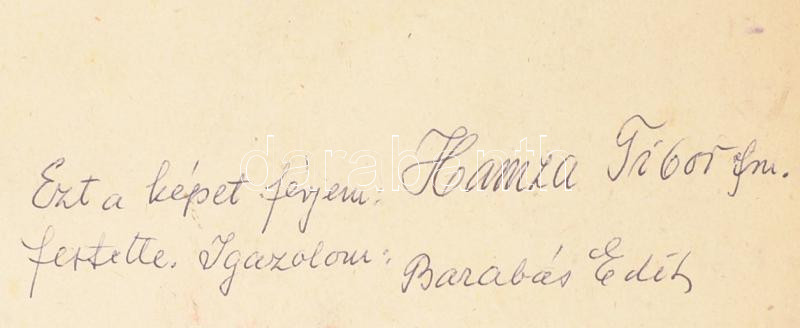 Ezt a képet férjem: Hamza Tibor fm.
festette. Igazolom: Barabás Edit
darabanth.com